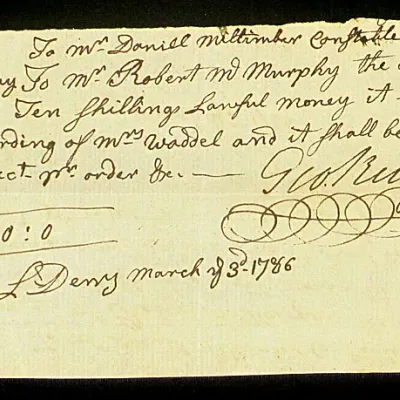 To Mr. Daniell Miltimber Constable
To Mr Robert Mc Murphy the
Ten Shillings Lawful money it
of Mrs Waddel and it shall be
pr. order &c. —
0 : 0
Derry March ye 3d. 1786